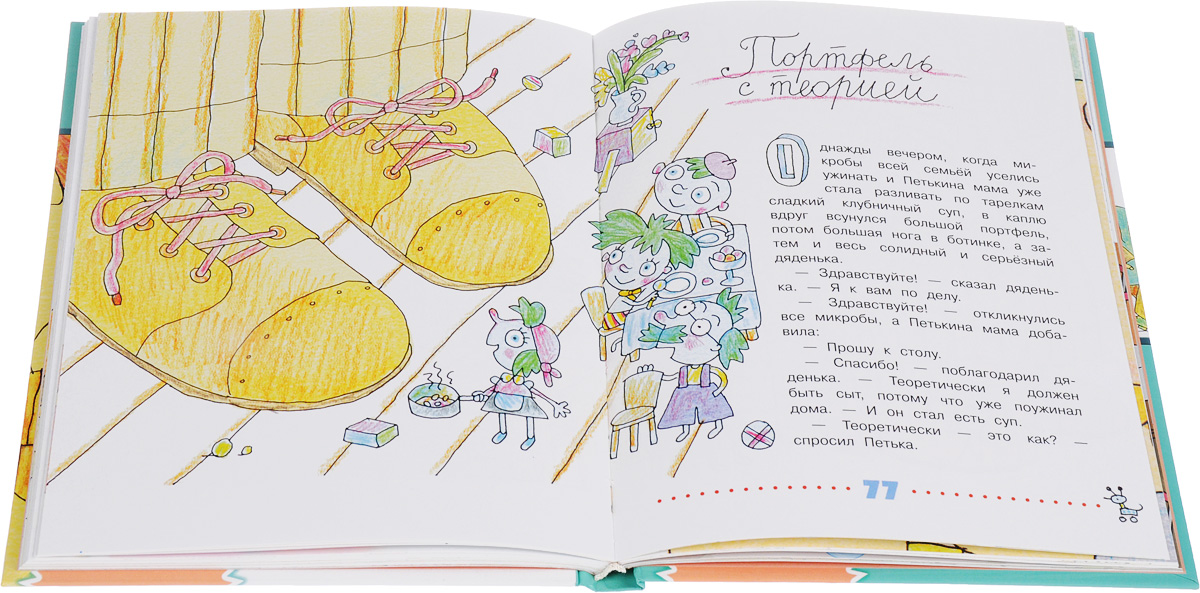 Портфель
с теорией
Однажды вечером, когда ми-
кробы всей семьёй уселись
ужинать и Петькина мама уже
стала разливать по тарелкам
сладкий клубничный суп, в каплю
вдруг всунулся большой портфель,
потом большая нога в ботинке, а за-
тем и весь солидный и серьёзный
дяденька.
— Здравствуйте! — сказал дядень-
ка. — Я к вам по делу.
— Здравствуйте! — откликнулись
все микробы, а Петькина мама доба-
вила:
— Прошу к столу.
— Спасибо! — поблагодарил дя-
денька. — Теоретически я должен
быть сыт, потому что уже поужинал
дома. — И он стал есть суп.
— Теоретически — это как? —
спросил Петька.
77